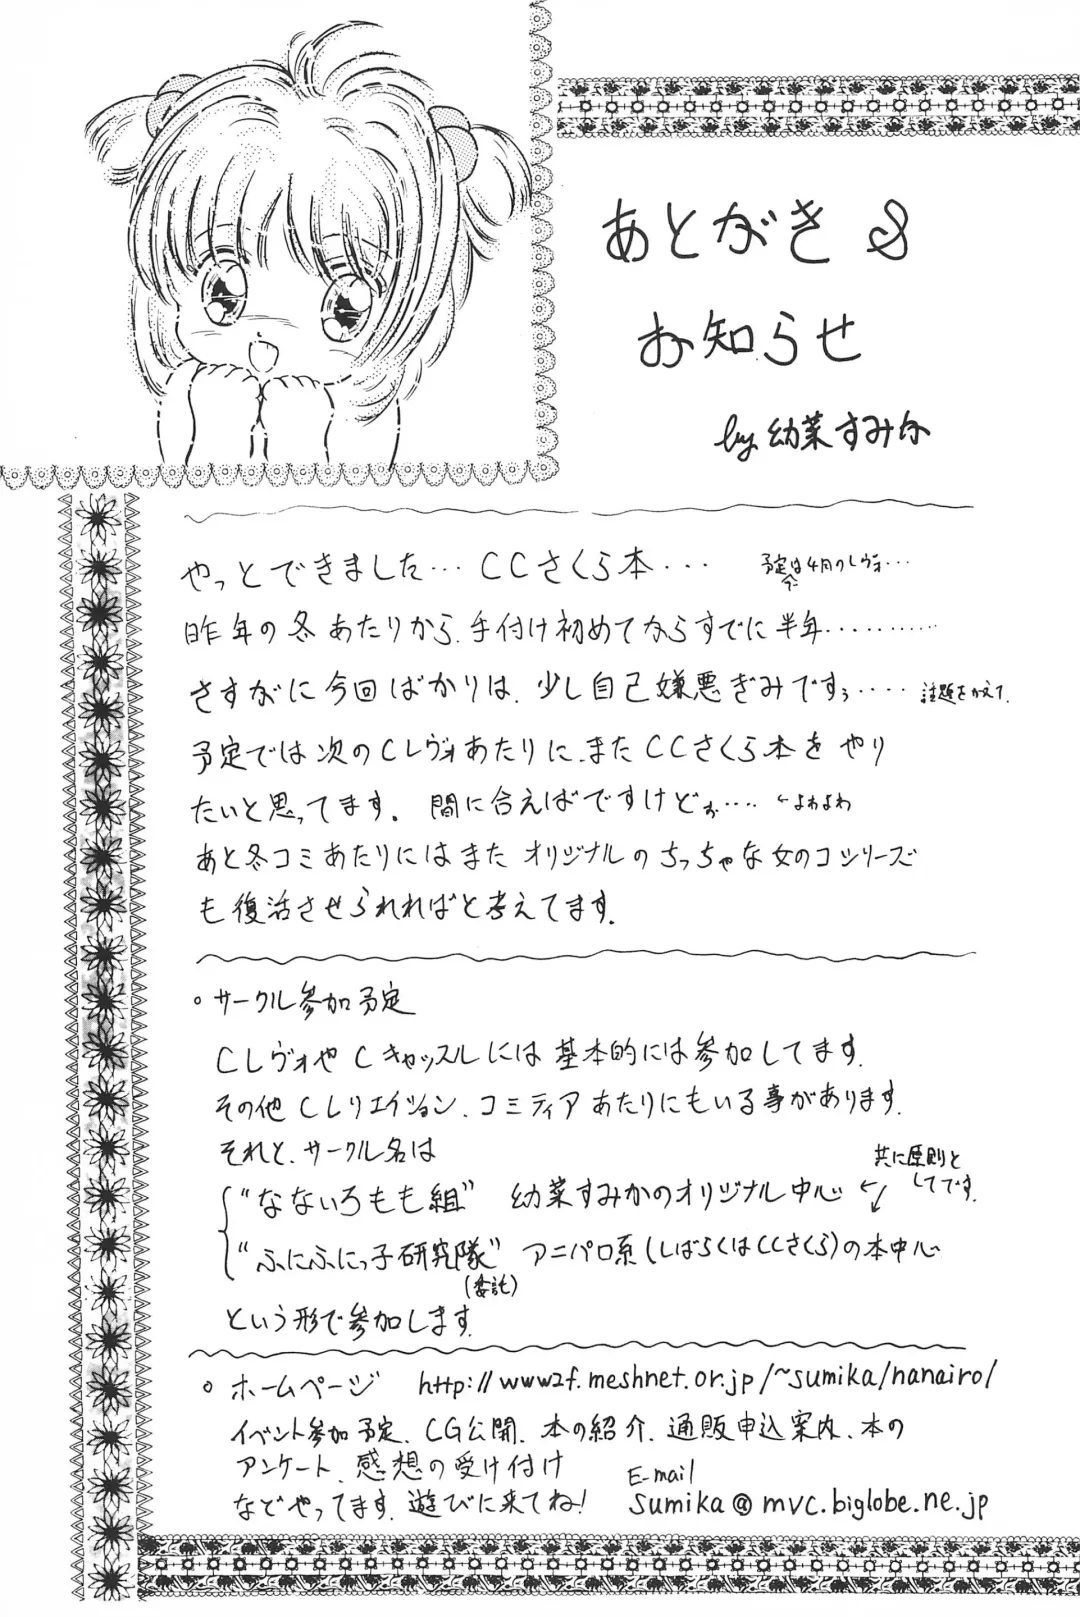 あとがき &
お知らせ
by 幼菜すみか
やっとできました… CCさくら本・・・
予定は4月のレヴォ・・・
昨年の冬あたりから、手付け初めてからすでに半年・・・・・・・・・・
さすがに今回ばかりは、少し自己嫌悪ぎみですぅ・・・・ 話題をかえて、
予定では次のCレヴォあたりに、またCCさくら本をやり
たいと思ってます。間に合えばですけどぉ・・・・ ←よわよわ
あと冬コミあたりにはまたオリジナルのちっちゃな女のコシリーズ
も復活させられればと考えてます。
○ サークル参加予定
CレヴォやCキャッスルには基本的には参加してます。
その他Cレリエイション、コミティアあたりにもいる事があります。
それと、サークル名は
"なないろもも組" 幼菜すみかのオリジナル中心
共に原則と
してです。
"ふにふにっ子研究隊" アニパロ系(しばらくはCCさくら)の本中心
(委託)
という形で参加します。
○ ホームページ http://www2f.meshnet.or.jp/~sumika/nanairo/
イベント参加予定、CG公開、本の紹介、通販申込案内、本の
アンケート、感想の受け付け
などやってます。遊びに来てね!
E-mail
sumika@mvc.biglobe.ne.jp